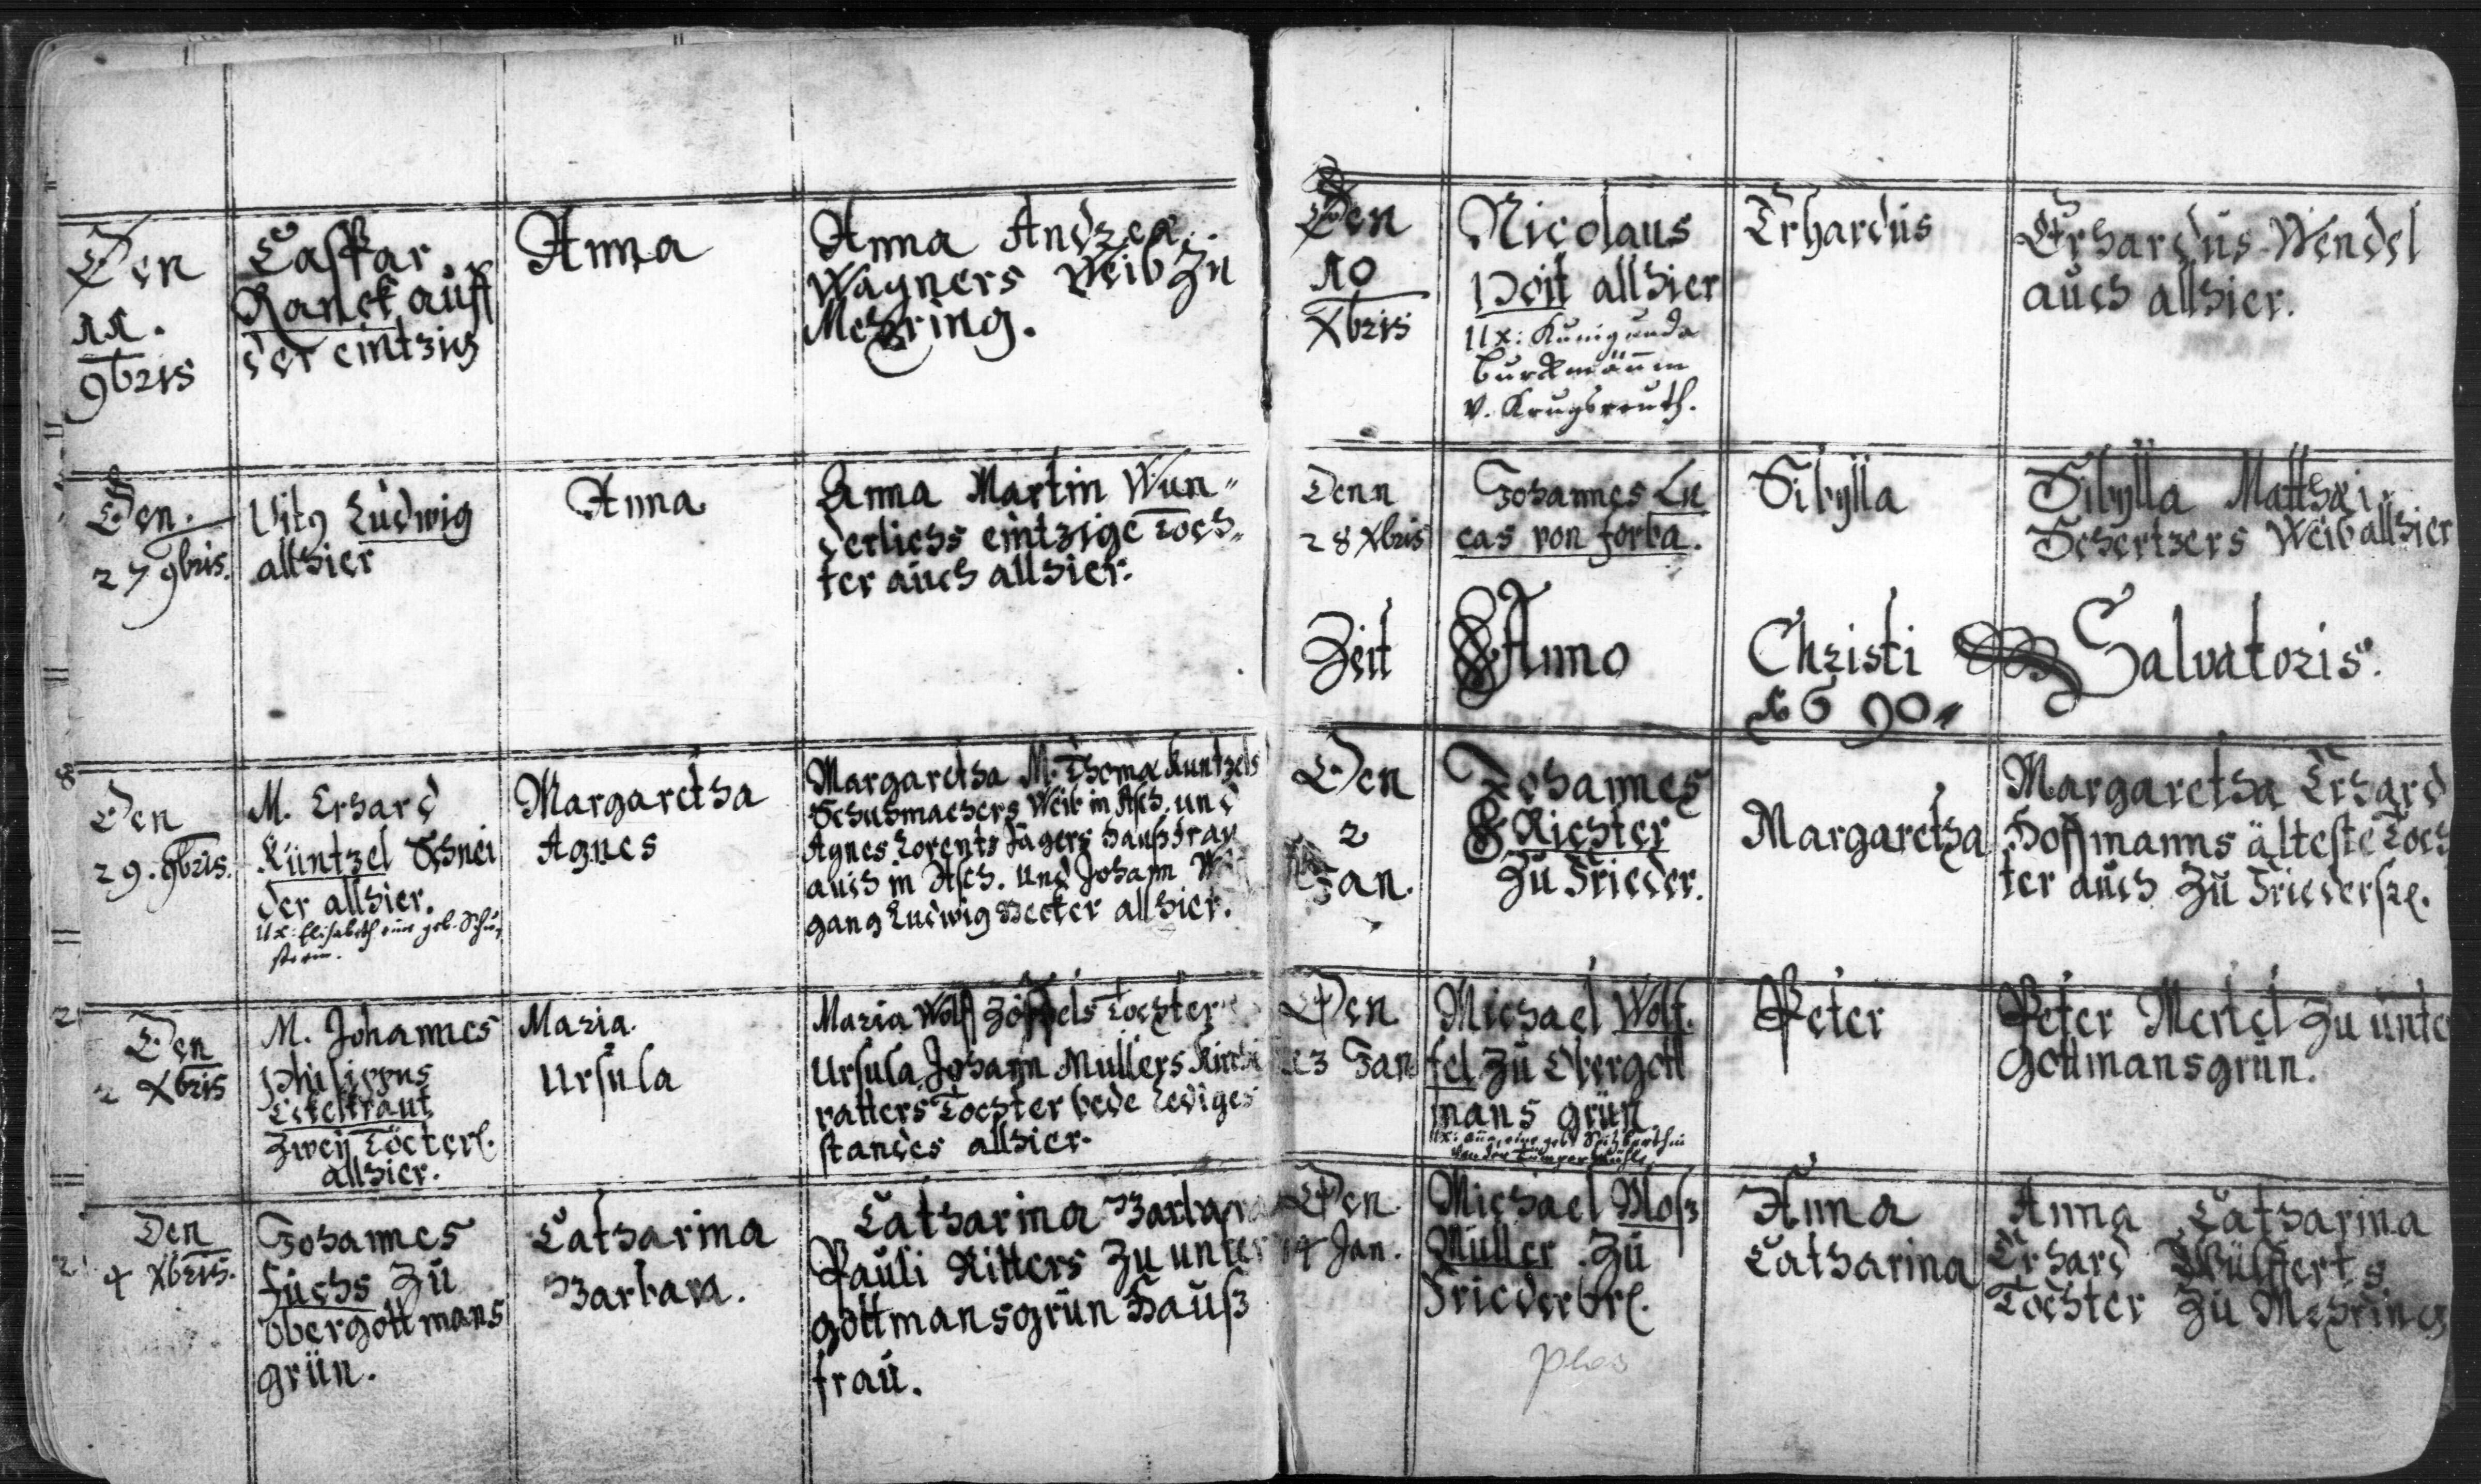 Den
11.
9bris
Caspar
Ranck auff
der eintzig
Anna
Anna Andreæ
Wagners Weib zu
Mehring.
Den
27 9bris.
Vitq Ludwig
allhier
Anna
Anna Martin Wun„
derlichs eintzige Toch„
ter auch allhier.
8
Den
29. 9bris.
M. Erhard
Küntzel Schnei
der allhier.
Ux: Elisabeth eine geb. Schu„
sterin.
Margaretha
Agnes
Margaretha M. Thomæ Kuntzels
Schuhmachers Weib in Asch. und
Agnes Lorentz Jägers haußfrau
auch in Asch. und Johann
gang Ludwig Becker allhier.
2
Den
2 Xbris
M. Johannes
Philippus
Eckeltraut
Zwey Töcterl.
allhier.
Maria.
Ursula
Maria Wolff Zöffels Tochter
Ursula Johann Müllers
vatters Tochter bede lediges
standes allhier.
2
Den
4 Xbris.
Johannes
Fuchs zu
Obergottmans
grün.
Catharina
Barbara.
Catharina Barbara
Pauli Ritters zu unter
gottmansgrün Hauß
frau.
Den
10
Xbris
Nicolaus
Voit allhier
Ux: Kunigunda
Burckmännin
v. Krugsreuth.
Erhardus
Erhardus Wendel
auch allhier.
Denn
28 Xbris
Johannes Lu
cas von forba.
Sibylla
Sibylla Matthæi
Schertzers Weib allhier
Zeit Anno Christi Salvatoris.
1690„
Den
2
Jan.
Johannes
Richter
Zu Frieder.
Margaretha
Margaretha Erhard
Hoffmanns älteste Toch
ter auch Zu Friedersre.
Den
13 Jan
Michael Wolf.
fel zu Obergott
mans grün
Ux: eine geb.
von der
Peter
Peter Mertel zu unte
gottmansgrün.
Den
14 Jan.
Michael Ploß
Müller Zu
Friederbre.
Ploß
Anna
Catharina
Anna Catharina
Erhard Wülfferts
Tochter Zu Mehring